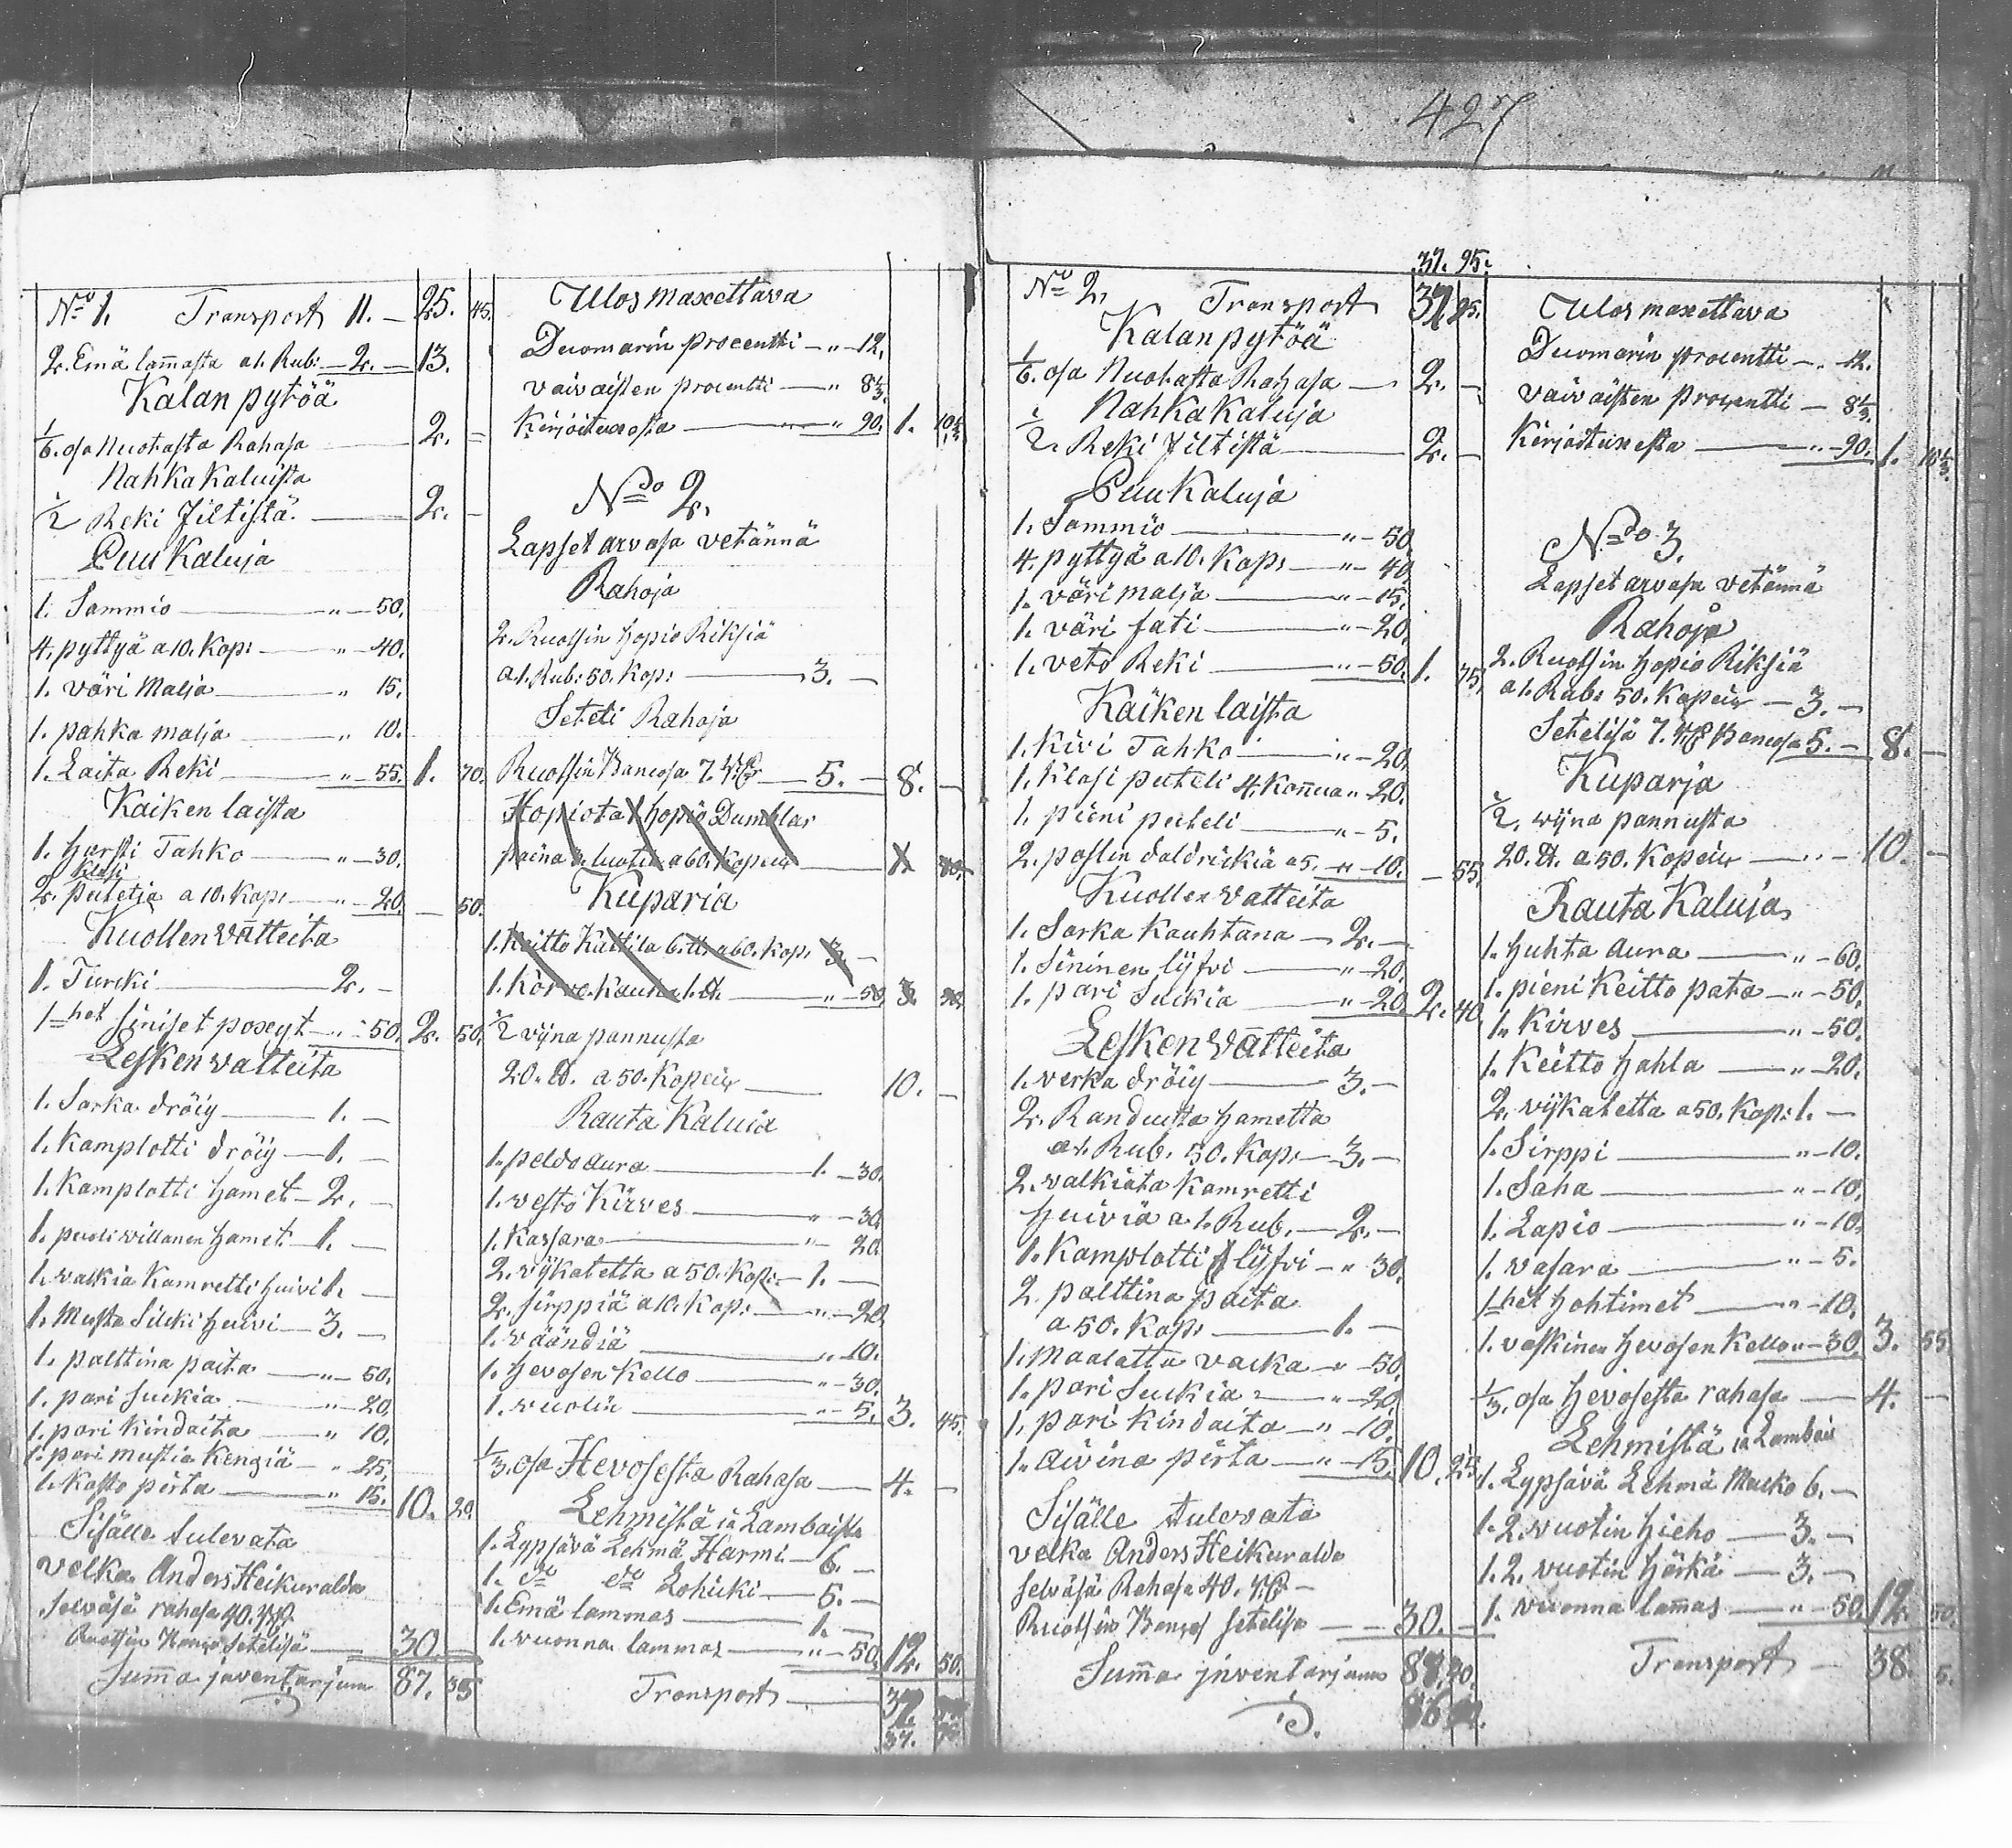 427
No 1. Transport 11. — 25. 45.
2. Emä lam̄asta a1. Rub: — 2. — 13.
Kalan pytöä
1/6. osa Nuotasta Rahasa — 2. —
Nahka Kaluista
1/2 Reki Jiltistä. — 2. —
Puu Kaluja
1. Sammio — " — 50.
4. pyttyä a 10. Kop: — " — 40.
1. väri Malja — " 15.
1. pahka malja — " 10.
1. Laita Reki — " — 55. 1. 70.
Kaiken laista
1. Harsti Tahko — " — 30.
Klasi
2. puteljä a 10. Kop: — " — 20. — 50.
Kuollen Vatteita
1. Turcki — 2. —
1het siniset poxyt — " — 50. 2. 50.
Lesken vatteita
1. Sarka dröiy — 1. —
1. Kamplotti dröiy — 1. —
1. Kamplotti Hamet — 2. —
1. puoli willanen Hamet — 1. —
1. walkia Kamretti Huivi 1. —
1. Musta Silcki Huivi — 3. —
1. palttina paita — " — 50.
1. pari Suckia — " — 20.
1. pari Kindaita — " 10.
1. pari mustia Kengiä — " 25.
1. Kasto pirta — " 15. 10. 20.
Sisälle tulevata
velka Anders Heikuralda
selväsä rahasa 40.
Ruotsin Banco Setelisä — 30. —
Sum̄a jnventarjum 87. 35
Ulos maxettava
Duomarin procentti — " — 12.
vaivaisten procentti — " 8 1/3.
Kirjoituxesta — " 90. 1. 10 1/3.
Ndo 2.
Lapset arvasa vetännä
Rahoja
2. Ruotsin Hopio Riksiä
a1. Rub: 50. Kop: — 3. —
Seteli Rahoja
Ruotsin Bancosa 7. — 5. — 8. —
Hopiota 1 hopio Dumblar
paina 2 luotia a 60. Kopeix
Kuparia
1. Keitto Kattila 6. a 60. Kop: 3. —
1. Körve Kauha 1. — " — 50. 3. 50.
1/2 vijna pannusta
20. a 50. Kopeix — 10. —
Rauta Kaluia
1. peldo aura — 1. — 30.
1. vesto Kirves — " — 30.
1. Kassara — " — 20.
2. vijkatetta a 50. Kop: — 1. —
2. sirppiä a 10. Kop: — " — 20.
1. väändiä — " — 10.
1. Hevosen Kello — " — 30.
1. vuolin — " — 5. 3. 45.
1/3. osa Hevosesta Rahasa — 4. —
Lehmistä ia Lambaista
1. Lypsävä Lehmä Harmi — 6. —
1. do do Lohicki — 5. —
1. Emä lammas — 1. —
1. vuonna lammas — " — 50. 12. 50.
Transport — 37.
37.
37. 95.
No 2. Transport 37 95.
Kalan pytöä
1/6. osa Nuotasta Rahasa — 2. —
Nahka Kaluja
1/2. Reki Jiltistä — 2. —
Puu Kaluja
1. Sammio — " — 50.
4. pyttyä a 10. Kop: — " — 40.
1. väri malja — " — 15.
1. väri fati — " — 20.
1. veto Reki — " — 50. 1. 75.
Kaiken laista
1. Kivi Tahko — " — 20.
1. Klasi puteli 4. Kan̄ua " — 20.
1. pieni puteli — " — 5.
2. poslin daldrickiä a 5. — " — 10. — 55.
Kuollen Vatteita
1. Sarka Kauhtana — 2. —
1. Sininen lijfvi — " — 20.
1. pari Suckia — " — 20. 2. 40.
Lesken Vatteita
1. verka dröiy — 3. —
2. Randuista Hametta
a1. Rub. 50. Kop: — 3. —
2. walkiata Kamretti
Huiviä a 1. Rub. — 2. —
1. Kamplotti lijfvi — " 30.
2. palttina paita
a 50. Kop: — 1. —
1. Maalattu vacka — " — 50.
1. pari Suckia — " — 20.
1. pari Kindaita — " — 10.
1. aivina pirta — " — 15. 10. 25.
Sisälle tulevata
velka Anders Heikuralda
selväsä Rahasa 40. —
Ruotsin Banco Setelisä — 30. —
Sum̄a jnventarjum
Ulos maxettava
Duomarin procentti — " 12.
vaivaisten procentti — 8 1/3.
Kirjoituxesta — " — 90. 1. 10 1/3.
Ndo 3.
Lapset arvasa vetännä
Rahoja
2. Ruotsin Hopio Riksiä
a1. Rub: 50. Kopeix — 3. —
Setelisä 7. Bancosa 5. — 8. —
Kuparja
1/2. wijna pannusta
20. a 50. Kopeix — " — 10. —
Rauta Kaluja
1. Huhta aura — " — 60.
1. pieni Keitto pata — " — 50.
1. Kirves — " — 50.
1. Keitto Hahla — " — 20.
2. vijkatetta a 50. Kop: 1. —
1. Sirppi — " — 10.
1. Saha — " — 10.
1. Lapio — " — 10.
1. vasara — " — 5.
1het Hohtimet — " — 10.
1. vaskinen Hevosen Kello " — 30. 3. 55.
1/3. osa Hevosesta rahasa — 4. —
Lehmistä ia Lambais
1. Lypsävä Lehmä Mucko 6. —
1. 2. vuotin Hieho — 3. —
1. 2. vuotin Härkä — 3. —
1. vuonna lam̄as — " — 50. 12. 50.
Transport — 38. 5.